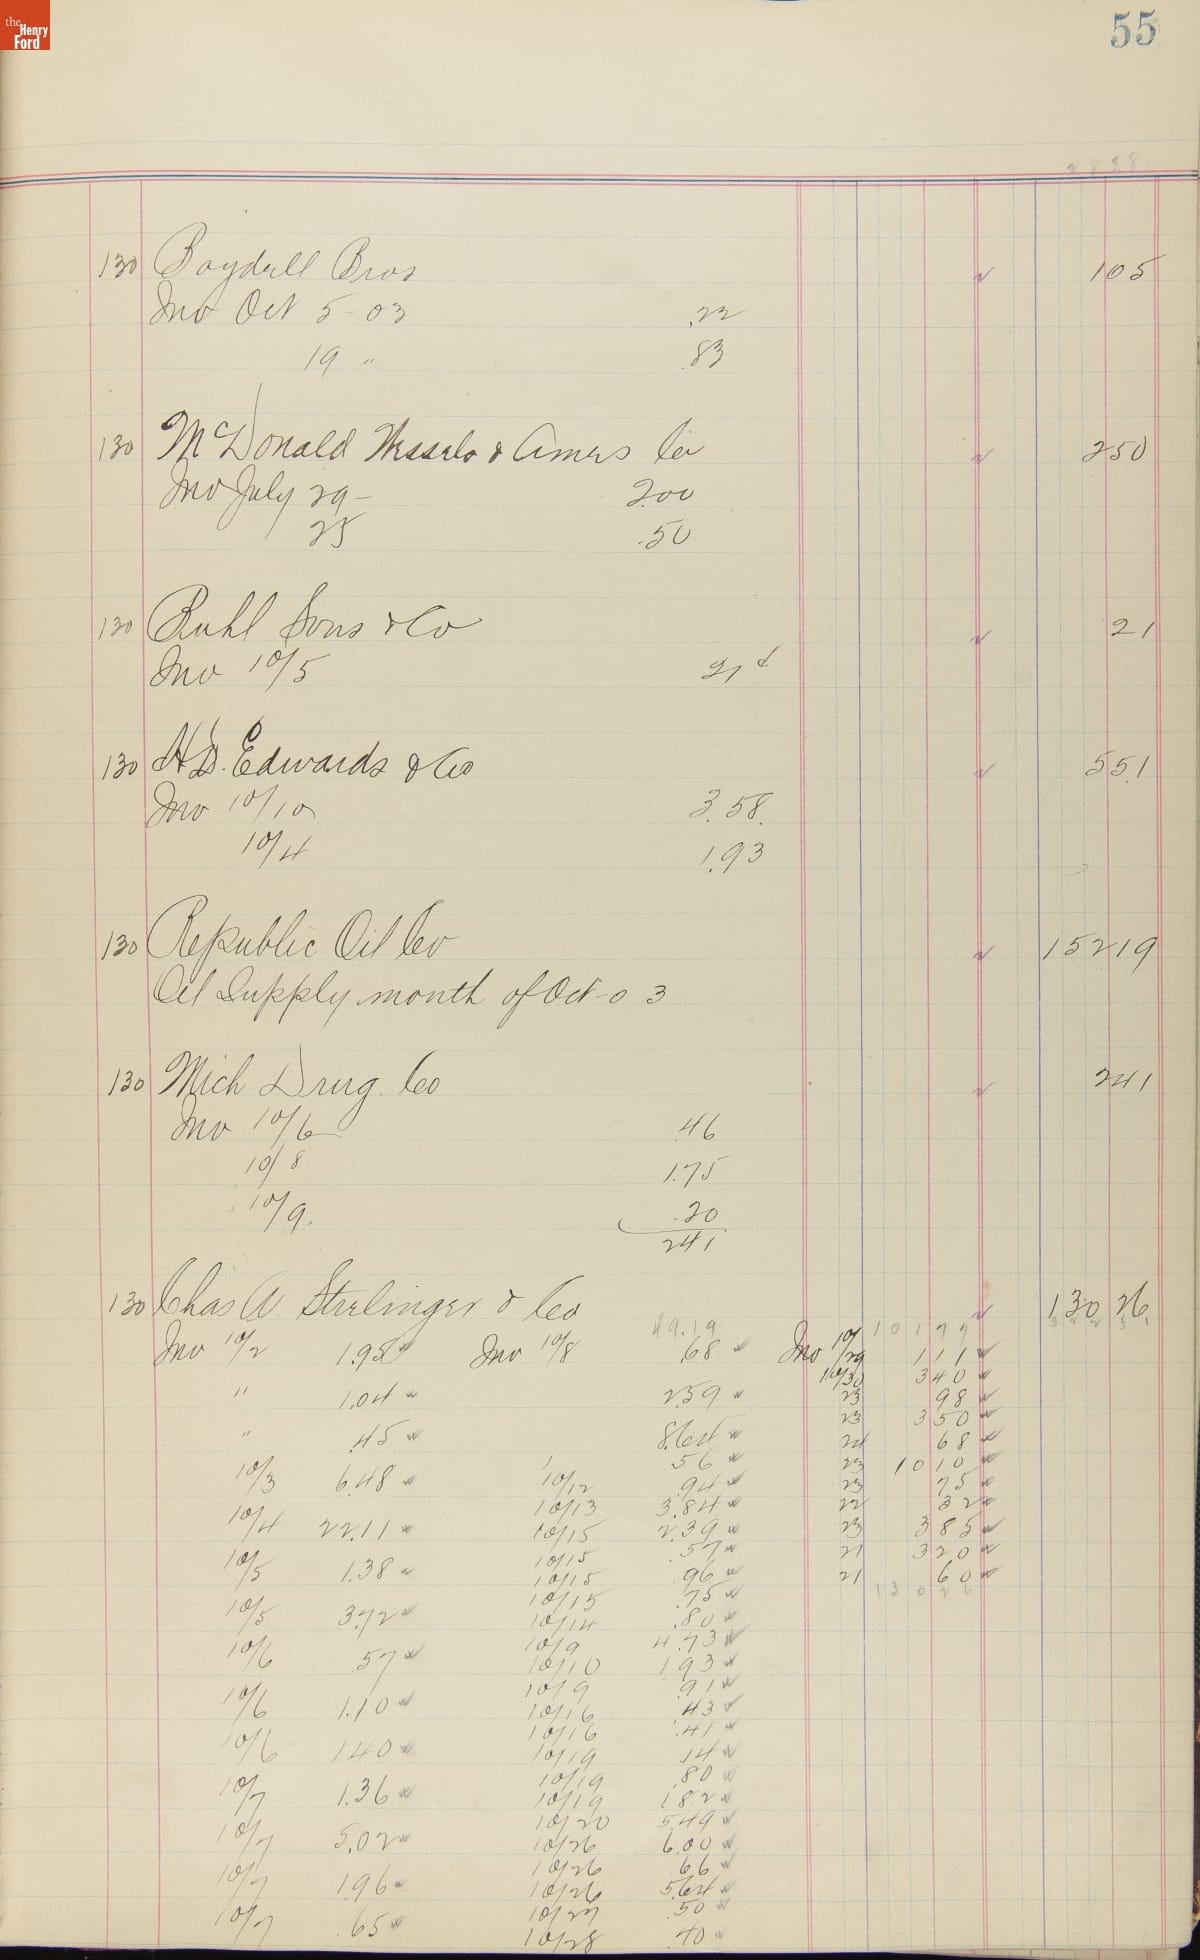 the Henry Ford
55
2838
130 Boydell Bros 105
Inv Oct 5-03 .22
19 " .83
130 McDonald Wessels & Amers Co 250
Inv July 29- 2.00
25 .50
130 Ruhl Sons & Co 21
Inv 10/5 21 ¢
130 H.D. Edwards & Co 551
Inv 10/10 3.58.
10/4 1.93
130 Republic Oil Co 15219
Oil Supply month of Oct-03
130 Mich Drug. Co 241
Inv 10/6 46
10/8 1.75
10/9. .20
241
130 Chas A. Strelinger & Co 130 26
49.19 10177
Inv 10/2 1.95 Inv 10/8 .68 Inv 10/29 111
10/30 340
" 1.04 2.59 23 98
23 350
" .45 8.64 24 68
.56 23 1010
10/3 6.48 10/12 .94 23 75
10/13 3.84 22 32
10/4 22.11 10/15 2.39 23 385
10/15 .57 21 320
10/5 1.38 10/15 .96 21 60
10/15 .75 13026
10/5 3.72 10/14 .80
10/9 4.73
10/6 .57 10/10 1.93
10/9 .91
10/6 1.10 10/16 .43
10/16 .41
10/6 1.40 10/19 .14
10/19 .80
10/7 1.36 10/19 1.82
10/20 5.49
10/7 5.02 10/26 6.00
10/26 .66
10/7 1.96 10/26 5.64
10/27 .50
10/7 .65 10/28 .40